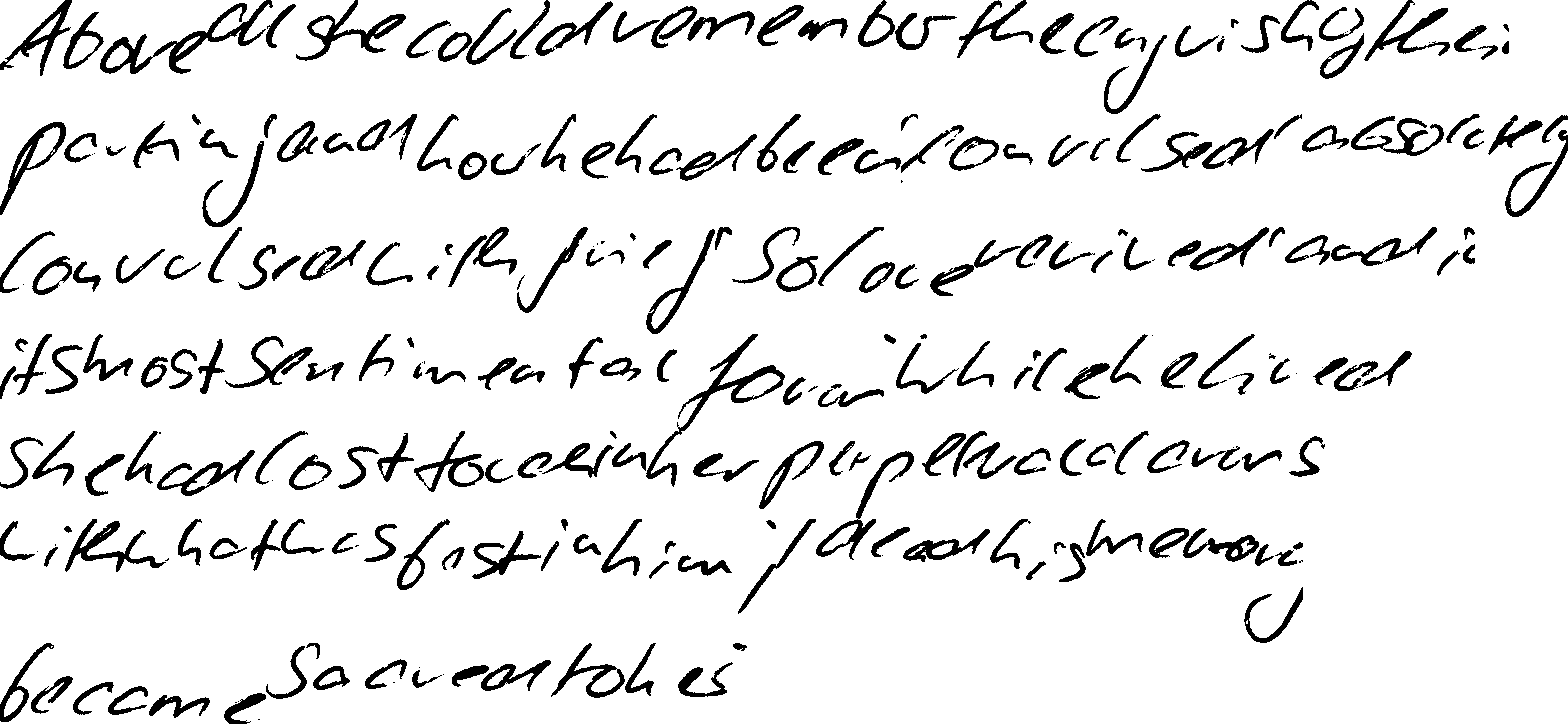 Above all she could remember the anguish of their
parting and how he had been convulsed absolutely
convulsed with grief So love revived and in
its most sentimental form while he lived
she had lost touch in her perpetual dreams
with what was best in him if dead his memory
became sacred to her